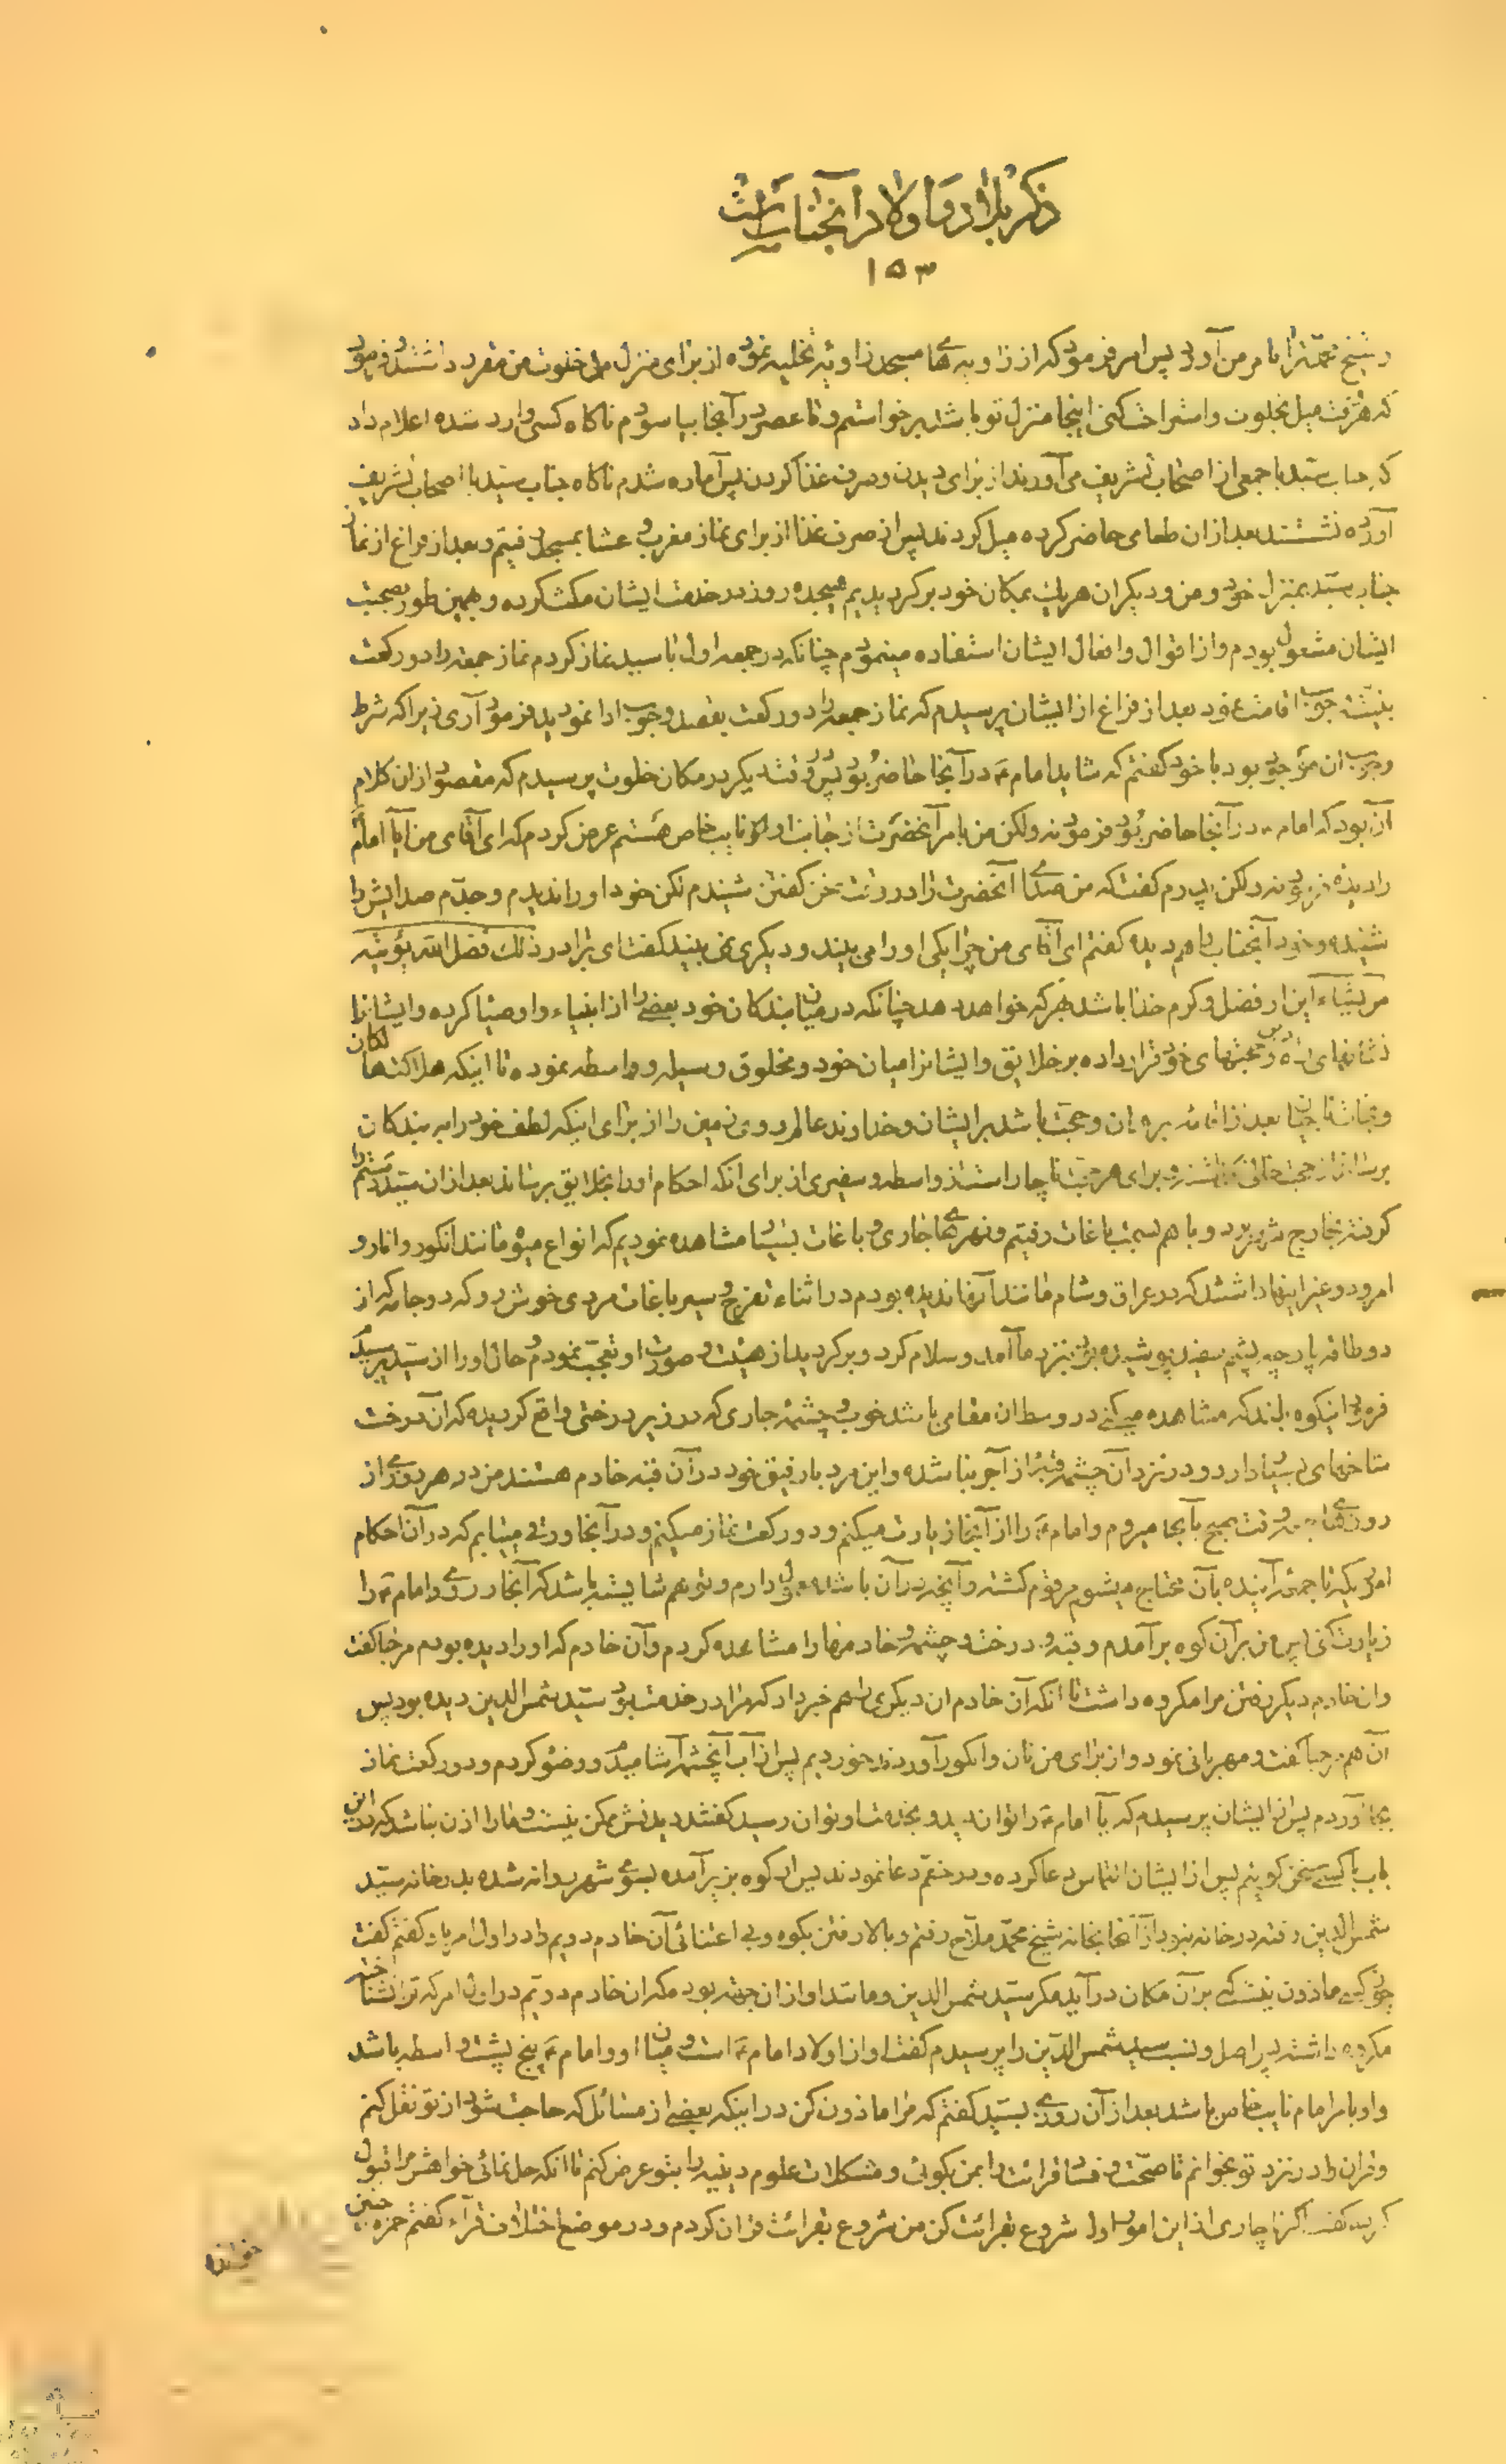 ذکر بلاد و اولاد آنجنابست
۱۵۳
و شیخ محمد ترا بامر من آورد پس امر فرمود که از زاویه های مسجد زاویه تخلیه نموده از برای منزل و خلوت من مقرر داشتند و فرمود
که هر وقت میل بخلوت و استراحت کنی اینجا منزل تو باشد برخواستم و تا عصر در آنجا بیاسودم ناکاه کسی وارد شده اعلام داد
که جناب سید با جمعی از اصحاب تشریف می آورند از برای دیدن و صرف غذا کردن پس آماده شدم ناکاه جناب سید با اصحاب تشریف
آورده نشستند بعد از ان طعامی حاضر کرده میل کردند پس از صرف غذا از برای نماز مغرب و عشا بمسجد رفتیم و بعد از فراغ از نماز
جناب سید بمنزل خود و من و دیکران هر یک بمکان خود برکردیدیم هیجده روز در خدمت ایشان مکث کرده و بهمین طور بصحبت
ایشان مشغول بودم و از اقوال و افعال ایشان استفاده مینمودم چنانکه در جمعه اول با سید نماز کردم نماز جمعه را دو رکعت
بنیت وجوب اقامت نمود بعد از فراغ از ایشان پرسیدم که نماز جمعه را دو رکعت بقصد وجوب ادا نمودید فرمود آری زیرا که شرط
وجوب ان موجود بود با خود کفتم که شاید امام ع در آنجا حاضر بود پس در وقت دیکر در مکان خلوت پرسیدم که مقصود از ان کلام
آن بود که امام ع در آنجا حاضر بود فرمود نه ولکن من بامر آنحضرت از جانب او نایب خاص هستم عرض کردم که ای آقای من آیا امام را
دیده فرمود نه ولکن پدرم کفت که من صدای آنحضرت را در وقت سخن کفتن شنیدم لکن خود او را ندیدم و جدم صدایش را
شنیده و خود آنجناب را هم دیده کفتم ای آقای من چرا یکی او را می بیند و دیکری نمی بیند کفت ای برادر ذلک فضل الله یؤتیه
من یشاء این از فضل و کرم خدا باشد بهر که خواهد دهد چنانکه در میان بندکان خود بعضی را از انبیاء و اوصیا کرده و ایشانرا
نشانهای راه و حجتهای خود قرار داده بر خلایق و ایشانرا میان خود و مخلوق وسیله و واسطه نموده تا اینکه هلاکت هالکان
و نجات ناجیان بعد از اقامه برهان و حجت باشد بر ایشان و خداوند عالم روی زمین را از برای اینکه لطف خود را به بندکان
برساند از حجت خالی نکذاشته و برای هر حجت ناچار است از واسطه و سفیری از برای انکه احکام او را بخلایق برساند بعد از ان سید دستم را
کرفته بخارج شهر برد و با هم بسمت باغات رفتیم و نهرهای جاری و باغات بسیار مشاهده نمودیم که انواع میوه مانند انکور و انار و
امرود و غیر اینها داشتند که در عراق و شام مانند آنها ندیده بودم در اثناء تفرج و سیر باغات مردی خوش رو که دو جامه که از
دو طاقه پارچه پشم سفید پوشیده بود بنزد ما آمد و سلام کرد و برکردید از هیئت و صورت او تعجب نمودم و حال او را از سید پرسیدم
فرمود اینکوه بلند که مشاهده میکنی در وسط ان مقامی باشد خوب و چشمه جاری که در زیر درختی واقع کردیده که آن درخت
شاخهای بسیار دارد و در نزد آن چشمه قبه از آجر بنا شده و این مرد با رفیق خود در آن قبه خادم هستند من در هر روزی از
روزهای جمعه وقت صبح بآنجا میروم و امام ع را از آنجا زیارت میکنم و دو رکعت نماز میکنم و در آنجا ورقه مییابم که در آن احکام
اموریکه تا جمعه آینده بآن محتاج میشوم مرقوم کشته و آنچه در آن باشد معمول دارم و تو هم شایسته باشد که آنجا روی و امام ع را
زیارت کنی پس من بر آن کوه برآمدم و قبه و درخت و چشمه و خادمها را مشاهده کردم و آن خادم که او را دیده بودم مرحبا کفت
وان خادم دیکر رفتن مرا مکروه داشت تا انکه آن خادم ان دیکری را هم خبر داد که مرا در خدمت سید شمس الدین دیده بود پس
آن هم مرحبا کفت و مهربانی نمود و از برای من نان و انکور آورد خوردیم پس از آب آنچشمه آشامیدم و وضو کردم و دو رکعت نماز
بجا آوردم پس از ایشان پرسیدم که آیا امام ع را توان دید و بخدمت او توان رسید کفتند دیدنش ممکن نیست و ما را اذن نباشد که در این
باب با کسی سخن کوییم پس از ایشان التماس دعا کرده و در حقم دعا نمودند پس از کوه بزیر آمده بسوی شهر روانه شده بدر خانه سید
شمس الدین رفته در خانه نبود از آنجا بخانه شیخ محمد ملاح رفتم و بالا رفتن بکوه و بی اعتنائی آن خادم دویم را در اول امر باو کفتم کفت
چون کسی ماذون نیست که بر آن مکان در آید مکر سید شمس الدین و مانند او از ان جهة بود مکر ان خادم دویم در اول امر که ترا نشناخته
مکروه داشته پس اصل و نسب سید شمس الدین را پرسیدم کفت او از اولاد امام ع است و میان او و امام ع پنج پشت واسطه باشد
و او بامر امام نایب خاص باشد بعد از آن روزی بسید کفتم که مرا ماذون کن در اینکه بعضی از مسائل که حاجت شود از تو نقل کنم
و قران را در نزد تو بخوانم تا صحت و فساد قرائت را بمن بکوئی و مشکلات علوم دینیه را بتو عرض کنم تا انکه حل نمائی خواهش مرا قبول
کرده کفت اکر ناچاری از این امور اول شروع بقرائت کن من شروع بقرائت قران کردم و در موضع اختلاف قرآء کفتم حمزه چنین
خوانده